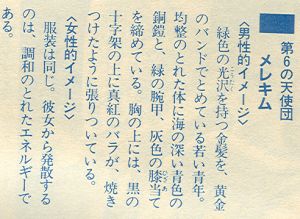 第6の天使団
メレキム
〈男性的イメージ〉
緑色の光沢を持つ金髪を、黄金
のバンドでとめている若い青年。
均整のとれた体に海の深い青色の
銅鎧と、緑の腕甲、灰色の膝当て
を締めている。胸の上には、黒の
十字架の上に真紅のバラが、焼き
つけたように張りついている。
〈女性的イメージ〉
服装は同じ。彼女から発散する
のは、調和のとれたエネルギーで
ある。